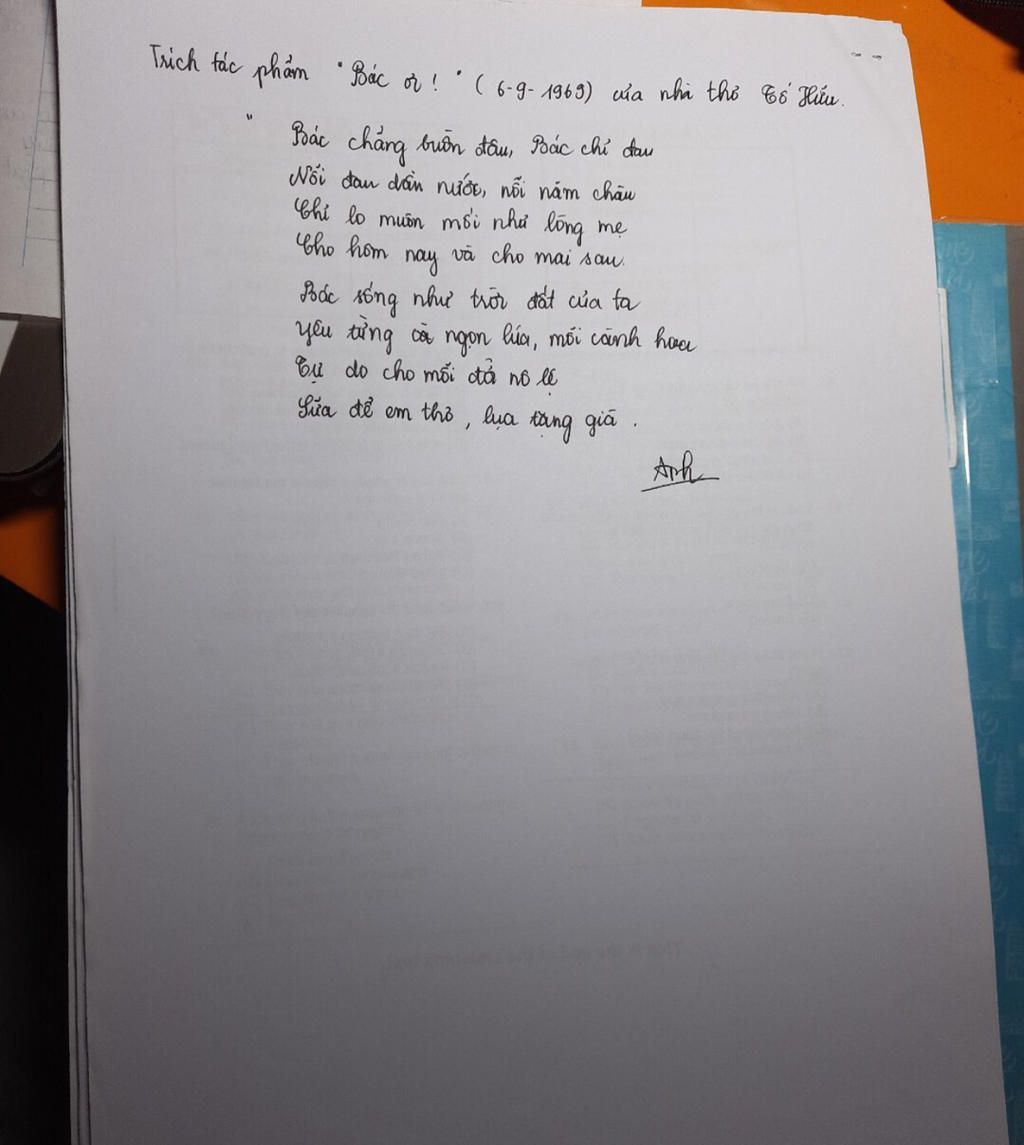 Trích tác phẩm "Bác ơi!" (6-9-1969) của nhà thơ Tố Hữu.
" Bác chẳng buồn đâu, Bác chỉ đau
Nỗi đau dân nước, nỗi năm châu
Chỉ lo muôn mối như lòng mẹ
Cho hôm nay và cho mai sau.
Bác sống như trời đất của ta
Yêu từng ngọn lúa, mỗi cành hoa
Tự do cho mỗi đời nô lệ
Sữa để em thơ, lụa tặng già.
Anh